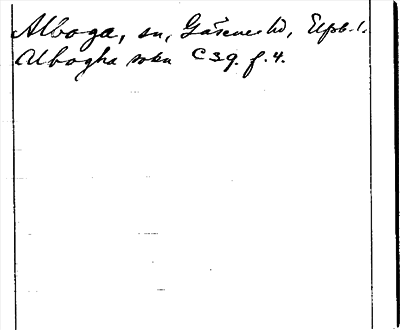 Alboga, sn, Gäseneshd, Elfsb. l.
Albogha sokn C 39. f. 4.